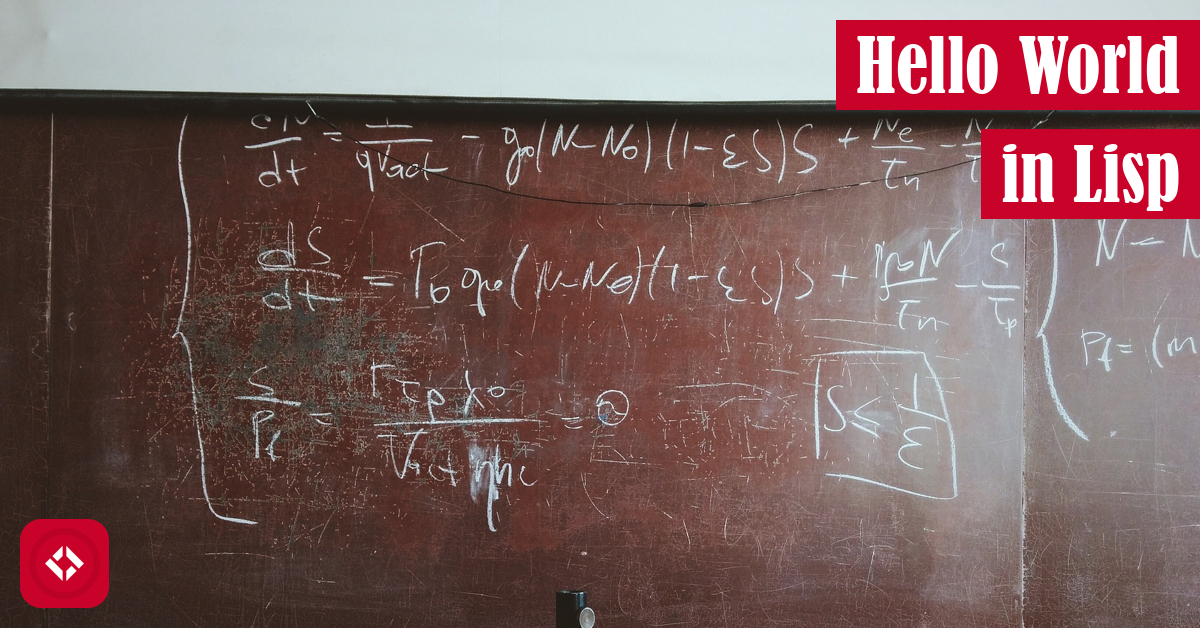 Hello World
in Lisp
dN/dt = I/qVact - g₀(N-N₀)(1-εS)S + Ne/τn - N/τ
dS/dt = Γ₀g₀(N-N₀)(1-εS)S + N/τn - S/τp
S/Pf = Γτpλ₀/Vactηhc = ϑ
S ≤ 1/ε
N - N
Pf = (m